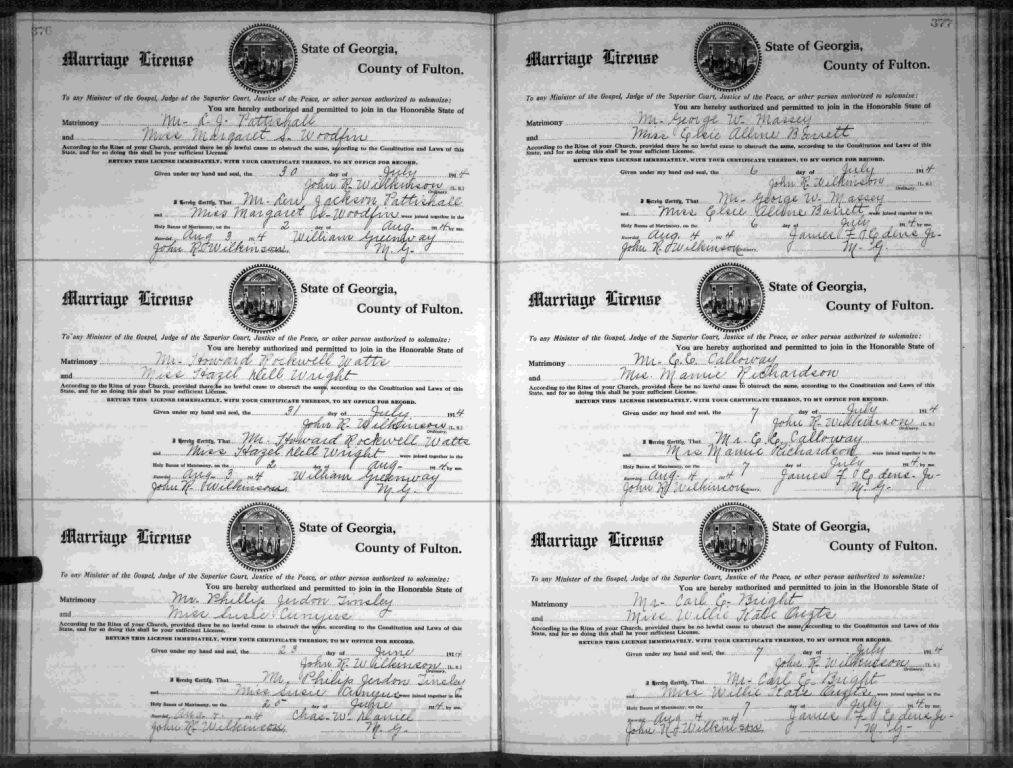 376
Marriage License
State of Georgia,
County of Fulton.
To any Minister of the Gospel, Judge of the Superior Court, Justice of the Peace, or other person authorized to solemnize:
You are hereby authorized and permitted to join in the Honorable State of
Matrimony Mr. L. J. Pattishall
and Miss Margaret S. Woodfin
According to the Rites of your Church, provided there be no lawful cause to obstruct the same, according to the Constitution and Laws of this
State, and for so doing this shall be your sufficient License.
RETURN THIS LICENSE IMMEDIATELY, WITH YOUR CERTIFICATE THEREON, TO MY OFFICE FOR RECORD.
Given under my hand and seal, the 30 day of July 1914
John R. Wilkinson (L. S.)
Ordinary.
I Hereby Certify, That Mr. Jackson Pattishall
and Miss Margaret Woodfin were joined together in the
Holy Banns of Matrimony, on the 2 day of Aug. 1914 by me.
Recorded Aug 3 1914 William Greenway
John R. Wilkinson M. G.
Marriage License
State of Georgia,
County of Fulton.
To any Minister of the Gospel, Judge of the Superior Court, Justice of the Peace, or other person authorized to solemnize:
You are hereby authorized and permitted to join in the Honorable State of
Matrimony Mr. Howard Rockwell Watts
and Miss Hazel Nell Wright
According to the Rites of your Church, provided there be no lawful cause to obstruct the same, according to the Constitution and Laws of this
State, and for so doing this shall be your sufficient License.
RETURN THIS LICENSE IMMEDIATELY, WITH YOUR CERTIFICATE THEREON, TO MY OFFICE FOR RECORD.
Given under my hand and seal, the 31 day of July 1914
John R. Wilkinson (L. S.)
Ordinary.
I Hereby Certify, That Mr. Howard Rockwell Watts
and Miss Hazel Nell Wright were joined together in the
Holy Banns of Matrimony, on the 2 day of Aug. 1914 by me.
Recorded Aug. 3 1914 William Greenway
John R. Wilkinson M. G.
Marriage License
State of Georgia,
County of Fulton.
To any Minister of the Gospel, Judge of the Superior Court, Justice of the Peace, or other person authorized to solemnize:
You are hereby authorized and permitted to join in the Honorable State of
Matrimony Mr. Phillip Jerdon Tinsley
and Miss Susie Cunyus
According to the Rites of your Church, provided there be no lawful cause to obstruct the same, according to the Constitution and Laws of this
State, and for so doing this shall be your sufficient License.
RETURN THIS LICENSE IMMEDIATELY, WITH YOUR CERTIFICATE THEREON, TO MY OFFICE FOR RECORD.
Given under my hand and seal, the 23 day of June 1914
John R. Wilkinson (L. S.)
Ordinary.
I Hereby Certify, That Mr. Philip Jerdon Tinsley
and Miss Susie Cunyus were joined together in the
Holy Banns of Matrimony, on the 25 day of June 1914 by me.
Recorded 1914 Chas. W. Daniel
John R. Wilkinson M. G.
377
Marriage License
State of Georgia,
County of Fulton.
To any Minister of the Gospel, Judge of the Superior Court, Justice of the Peace, or other person authorized to solemnize:
You are hereby authorized and permitted to join in the Honorable State of
Matrimony Mr. George W. Massey
and Miss Elsie Alline Barrett
According to the Rites of your Church, provided there be no lawful cause to obstruct the same, according to the Constitution and Laws of this
State, and for so doing this shall be your sufficient License.
RETURN THIS LICENSE IMMEDIATELY, WITH YOUR CERTIFICATE THEREON, TO MY OFFICE FOR RECORD.
Given under my hand and seal, the 6 day of July 1914
John R. Wilkinson (L. S.)
Ordinary.
I Hereby Certify, That Mr. George W. Massey
and Miss Elsie Alline Barrett were joined together in the
Holy Banns of Matrimony, on the 6 day of July 1914 by me.
Recorded Aug 4 1914 James F. Edens Jr.
John R. Wilkinson Ordinary. M. G.
Marriage License
State of Georgia,
County of Fulton.
To any Minister of the Gospel, Judge of the Superior Court, Justice of the Peace, or other person authorized to solemnize:
You are hereby authorized and permitted to join in the Honorable State of
Matrimony Mr. E. E. Calloway
and Mrs. Mamie Richardson
According to the Rites of your Church, provided there be no lawful cause to obstruct the same, according to the Constitution and Laws of this
State, and for so doing this shall be your sufficient License.
RETURN THIS LICENSE IMMEDIATELY, WITH YOUR CERTIFICATE THEREON, TO MY OFFICE FOR RECORD.
Given under my hand and seal, the 7 day of July 1914
John R. Wilkinson (L. S.)
Ordinary.
I Hereby Certify, That Mr. E. E. Calloway
and Mrs Mamie Richardson were joined together in the
Holy Banns of Matrimony, on the 7 day of July 1914 by me.
Recorded Aug. 4 1914 James F. Edens Jr
John R. Wilkinson Ordinary. M. G.
Marriage License
State of Georgia,
County of Fulton.
To any Minister of the Gospel, Judge of the Superior Court, Justice of the Peace, or other person authorized to solemnize:
You are hereby authorized and permitted to join in the Honorable State of
Matrimony Mr. Carl E. Bright
and Miss Willie Kate
According to the Rites of your Church, provided there be no lawful cause to obstruct the same, according to the Constitution and Laws of this
State, and for so doing this shall be your sufficient License.
RETURN THIS LICENSE IMMEDIATELY, WITH YOUR CERTIFICATE THEREON, TO MY OFFICE FOR RECORD.
Given under my hand and seal, the 7 day of July 1914
John R. Wilkinson (L. S.)
Ordinary.
I Hereby Certify, That Mr. Carl E. Bright
and Miss Willie Kate were joined together in the
Holy Banns of Matrimony, on the 7 day of July 1914 by me.
Recorded Aug 4 1914 James F. Edens Jr.
John R. Wilkinson M. G.